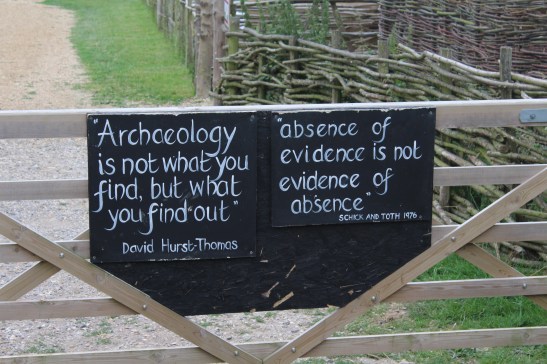 "Archaeology
is not what you
find, but what
you find out"
David Hurst-Thomas
"absence of
evidence is not
evidence of
absence"
SCHICK AND TOTH 1976